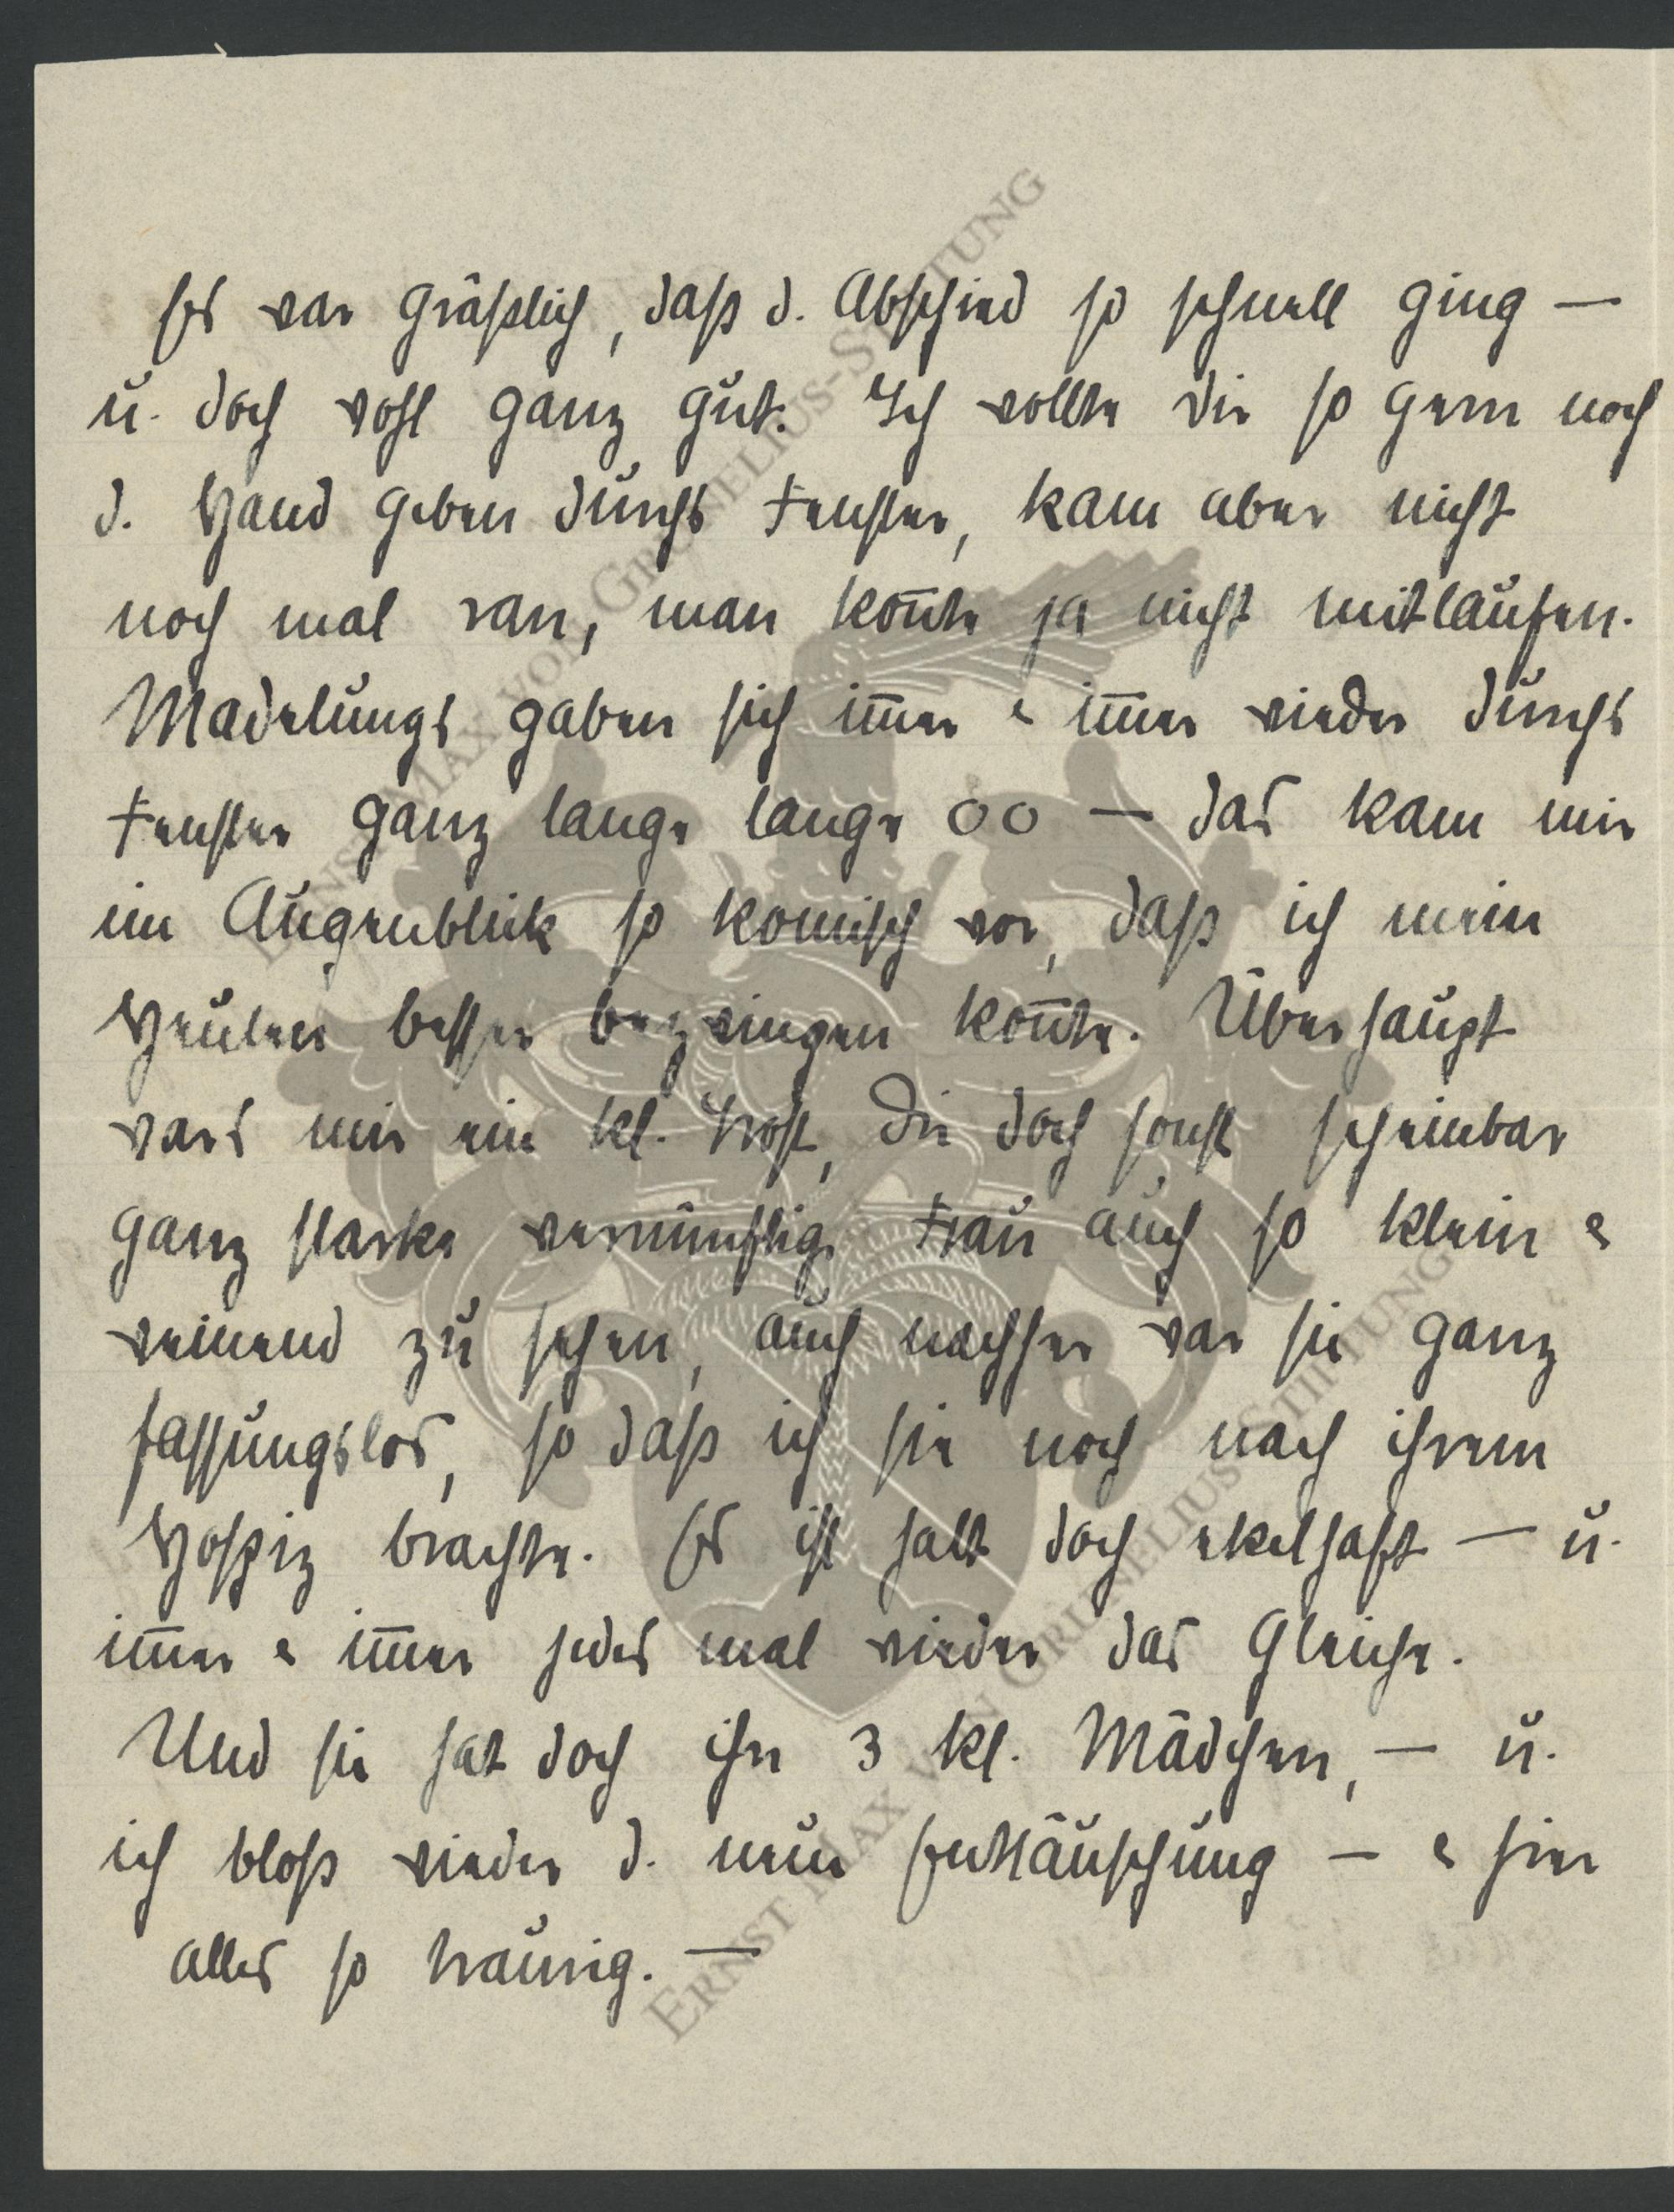 Es war gräßlich, daß d. Abschied so schnell ging —
u. doch wohl ganz gut. Ich wollte dir so gern noch
d. Hand geben durchs Fenster, kam aber nicht
noch mal ran, man kon̄te ja nicht mitlaufen.
Madelungs gaben sich im̄er & im̄er wieder durchs
Fenster ganz lange lange OO — das kam mir
im Augenblick so komisch vor, daß ich mein
Heulen besser bezwingen kon̄te. Überhaupt
wars mir ein kl. Trost, die doch sonst scheinbar
ganz starke vernünftige Frau auch so klein &
weinend zu sehen, auch nachher war sie ganz
fassungslos, so daß ich sie noch nach ihrem
Hospiz brachte. Es ist halt doch ekelhaft — u.
im̄er & im̄er jedes mal wieder das Gleiche.
Und sie hat doch ihre 3 kl. Mädchen, — u.
ich bloß wieder d. neue Enttäuschung — & hier
alles so traurig. —
ERNST MAX VON GRUNELIUS-STIFTUNG
ERNST MAX VON GRUNELIUS-STIFTUNG